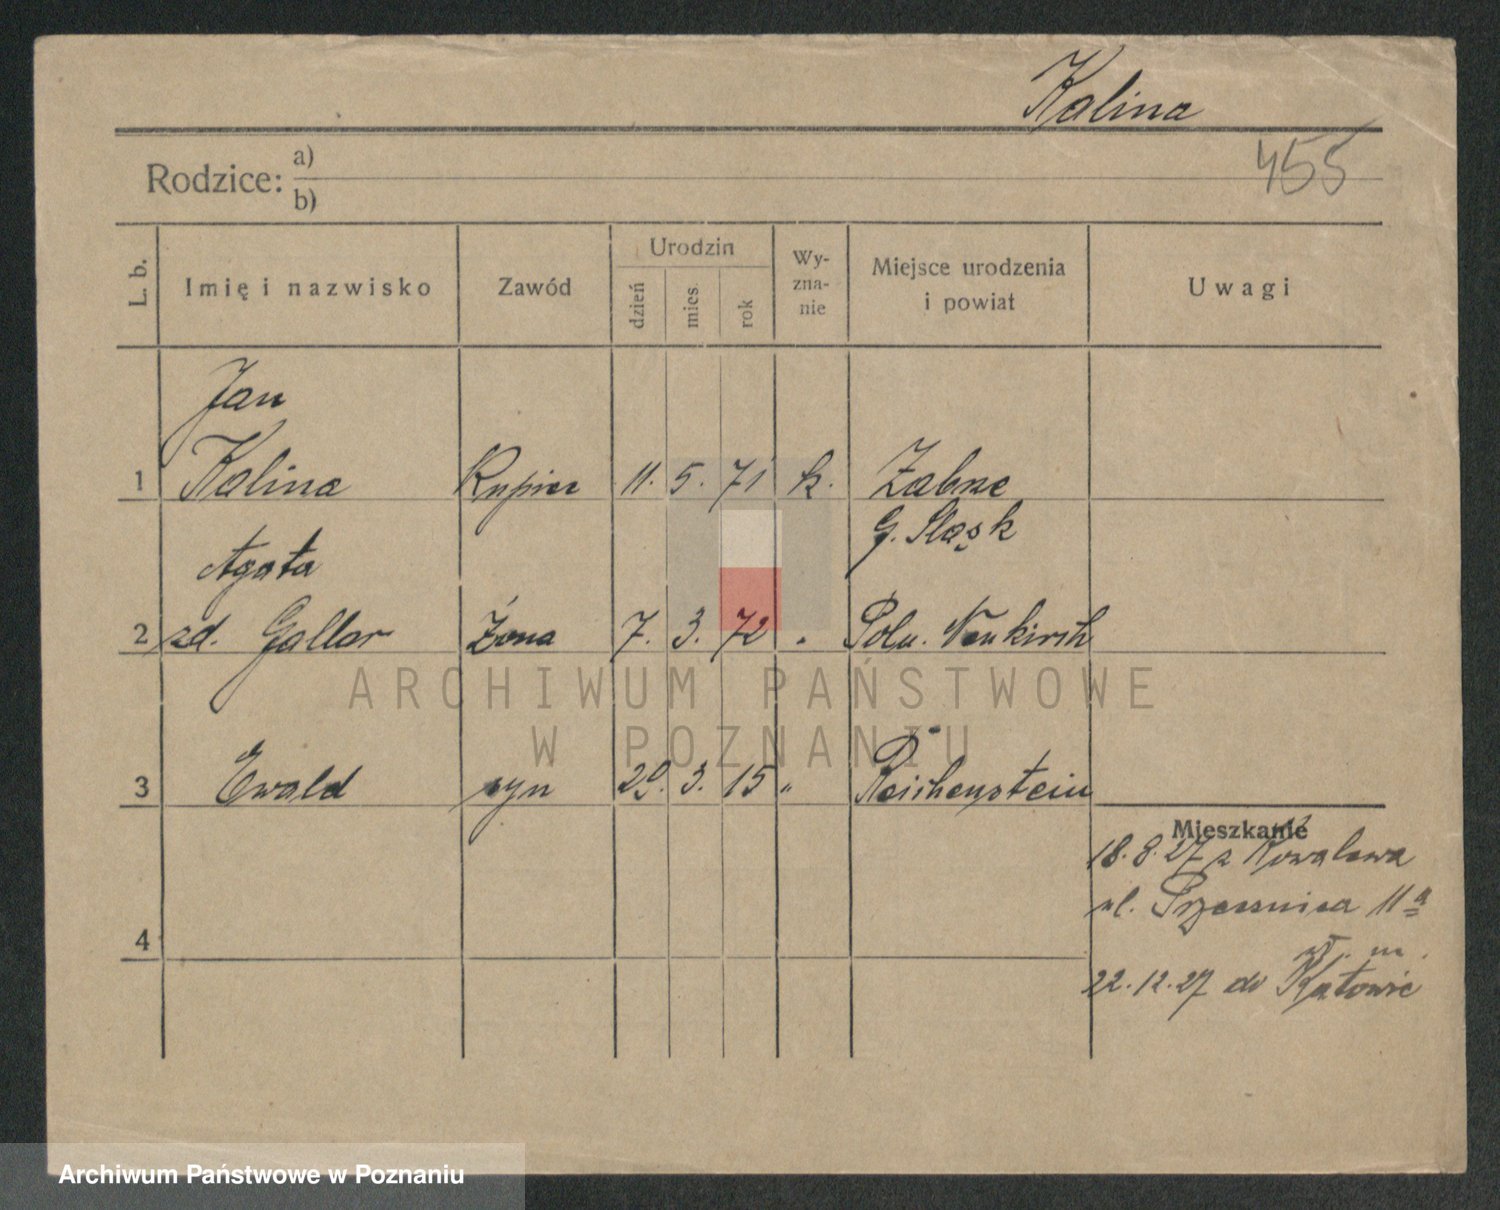 Kalina
455
Rodzice: a)
b)
L. b. Imię i nazwisko Zawód Urodzin dzień mies. rok Wy-zna-nie Miejsce urodzenia i powiat Uwagi
Jan
1 Kalina Kupiec 11. 5. 71 k. Zabrze
G. Śląsk
Agata
2 zd. Gallar Żona 7. 3. 72 " Poln. Neukirch
3 Ewald syn 29. 3. 15 " Reichenstein
Mieszkanie
18.8.27 z Kowalewa
ul. 11a
4
22.12.27 do Katowic
ARCHIWUM PAŃSTWOWE
W POZNANIU
Archiwum Państwowe w Poznaniu